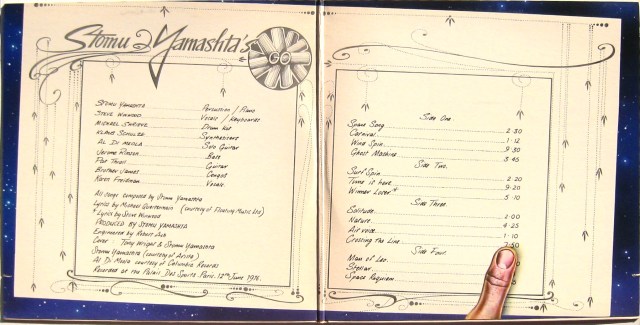 Stomu Yamashta's
GO
Stomu Yamashta Percussion / Piano
Steve Winwood Vocals / Keyboards
Michael Shrieve Drum Kit
Klaus Schulze Synthesizers
Al Di Meola Solo Guitar
Jerome Rimson Bass
Pat Thrall Guitar
Brother James Congas
Karen Friedman Vocals.
All songs composed by Stomu Yamashta
Lyrics by Michael Quartermain (courtesy of Floating Music Ltd)
* Lyrics by Steve Winwood
PRODUCED BY STOMU YAMASHTA
Engineered by Robert Ash
Cover Tony Wright & Stomu Yamashta
Stomu Yamashta (courtesy of Arista)
Al Di Meola courtesy of Columbia Records
Recorded at the Palais Des Sports Paris. 12th June 1976.
Side One
Space Song 2·30
Carnival 1·12
Wind Spin 9·30
Ghost Machine 3·45
Side Two.
Surf Spin 2·20
Time is here 9·20
Winner Lover * 5·10
Side Three
Solitude 2·00
Nature 4·25
Air voice 1·10
Crossing the Line 7·50
Side Four
Man of Leo
Stellar
Space Requiem